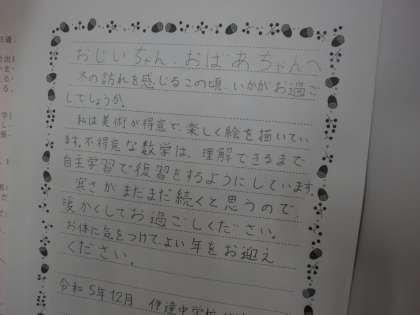 おじいちゃん、おばあちゃんへ
冬の訪れを感じるこの頃、いかがお過ご
しでしょうか。
私は美術が得意で、楽しく絵を描いてい
ます。不得意な数学は、理解できるまで
自主学習で復習をするようにしています。
寒さがまだまだ続くと思うので、
暖かくしてお過ごしください。
お体に気をつけて、よい年をお迎え
ください。
令和5年12月 伊達中学校